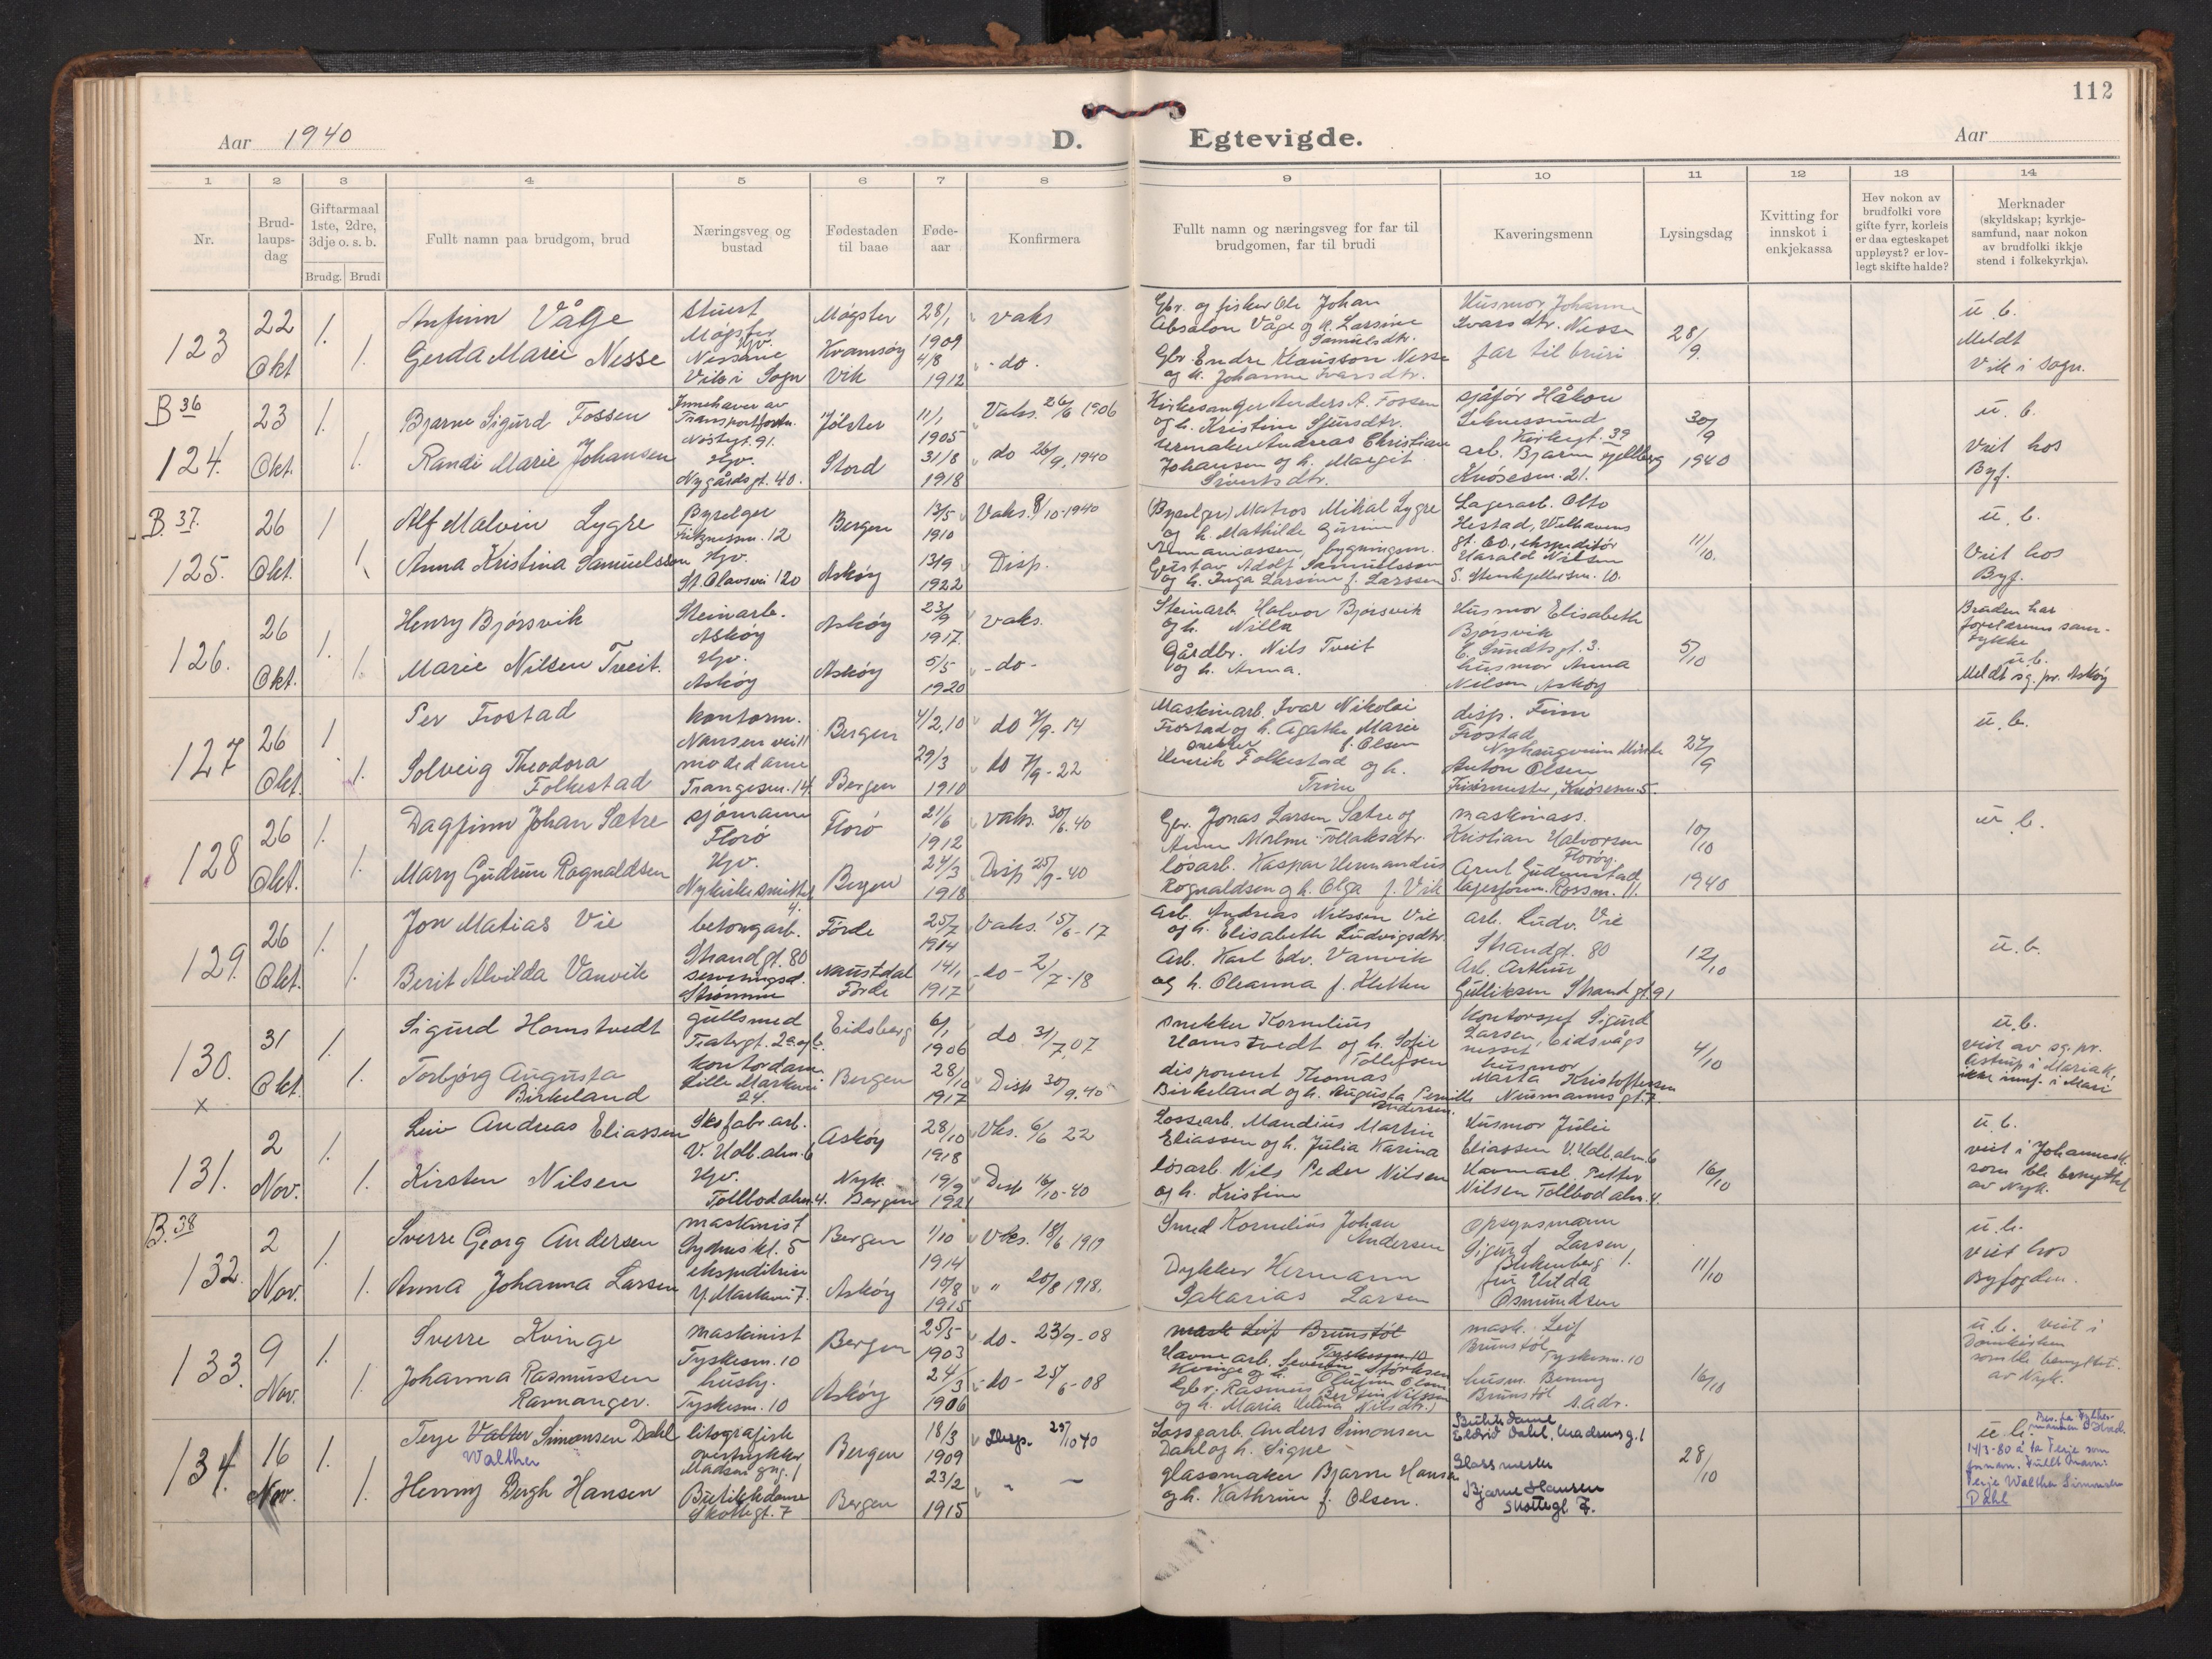 112
Aar 1940
D. Egtevigde.
Aar
1 2 3 4 5 6 7 8 9 10 11 12 13 14
Nr.
Brud-
laups-
dag
Giftarmaal
1ste, 2dre,
3dje o. s. b.
Brudg. Brudi
Fullt namn paa brudgom, brud
Næringsveg og
bustad
Fødestaden
til baae
Føde-
aar
Konfirmera
Fullt namn og næringsveg for far til
brudgomen, far til brudi
Kaveringsmenn
Lysingsdag
Kvitting for
innskot i
enkjekassa
Hev nokon av
brudfolki vore
gifte fyrr, korleis
er daa egteskapet
uppløyst? er lov-
legt skifte halde?
Merknader
(skyldskap; kyrkje-
samfund, naar nokon
av brudfolki ikkje
stend i folkekyrkja).
123
22
Okt
1. 1.
Anfinn Våge
Gerda Marie Nesse
Stuert
Møgster
Hjv.
Nessane
Vik i Sogn
Møgster
Kvamsøy
Vik
28/1
1909
4/8
1912
Vaks
- do.
Gbr. og fisker Ole Johan
Absalon Våge og h. Larsine
Samuelsdtr.
Gbr. Endre Klausson Nesse
og h. Johanne Ivarsdtr.
Husmor Johanne
Ivarsdtr. Nesse
far til bruri
28/9.
u. b.
Meldt
Vik i Sogn.
B 36
124.
23
Okt.
1. 1.
Bjarne Sigurd Fossen
Randi Marie Johansen
Innehaver av
Transportforn.
Nøstegt. 91.
Hjv.
Nygårdsgt. 40.
Jølster
Stord
11/1
1905
31/8
1918
Vaks. 26/6 1906
do 26/9. 1940
Kirkesanger Anders A. Fossen
og h. Kristine Sjursdtr.
Urmaker Andreas Christian
Johansen og h. Margit
Sivertsdtr.
sjåfør Håkon
Lehnessund
Kirkegt. 39
arb. Bjarne Fjellberg
Knøsesm. 21.
30/9
1940
u. b.
Viet hos
Byf.
B. 37.
125.
26
Okt.
1 1.
Alf Malvin Lygre
Anna Kristina Samuelsson
Byselger
Fritznersm. 12
Hjv.
St. Olavsvei 120
Bergen
Askøy
13/5
1910
13/9
1922
Vaks. 8/10-1940
Disp.
(Byselger) Matros Mikal Lygre
og h. Mathilde Gurine
Ananiassen, bygningsm.
Gustav Adolf Samuelsson
og h. Inga Larsine f. Larssen
Lagerarb. Otto
Hestad, Welhavens
gt. 60., ekspeditør
Harald Nilsen
S. Stenkjellersm. 10.
11/10.
u. b.
Viet hos
Byf.
126.
26
Okt.
1. 1.
Henry Bjørsvik
Marie Nilsen Tveit.
Steinarb.
Askøy
Hjv.
Askøy
Askøy
Askøy
23/9
1917.
5/5
1920
vaks.
- do -
Steinarb. Halvor Bjørsvik
og h. Nilla
Gårdbr. Nils Tveit
og h. Anna.
Husmor Elisabeth
Bjørsvik
E. Sundtsgt. 3.
husmor Anna
Nilsen Askøy
5/10
Bruden har
foreldrenes sam-
tykke
u. b.
Meldt sg. pr. Askøy
127
26
Okt.
1 1.
Per Frostad
Solveig Theodora
Folkestad
kontorm.
Nansen vei 11
motedame
Trangesm. 14.
Bergen
Bergen
4/2, 10
29/3
1910
do 7/9. 14
do 7/9 - 22
Maskinarb. Ivar Nikolai
Frostad og h. Agathe Marie
snekker f. Olsen
Henrik Folkestad og h.
Trine
disp. Finn
Frostad
Nyhaugveien Minde
Anton Olsen
Frisørmester, Knøsesm. 5.
27/9
u. b.
128
26
Okt.
1. 1.
Dagfinn Johan Sætre
Mary Gudrun Rognaldsen
sjømann
Florø
Hjv.
Nykirkesmittet
4.
Florø
Bergen
21/6
1912
24/3
1918
Vaks. 30/6. 40
Disp 25/9 - 40
Gbr. Jonas Larsen Sætre og
Anne Malene Tollaksdtr.
løsarb. Kaspar Hermandius
Rognaldsen og h. Olga f. Vik
maskinass.
Kristian Halvorsen
Florøy.
Arnt Gudmestad
lagerform. Rossm. 11.
10/10
1940
u. b.
129.
26
Okt.
1. 1.
Jon Matias Vie
Berit Alvilda Vanvik
betongarb.
Strandgt. 80
serveringsd.
Strømmen
Førde
Naustdal
Førde
25/7
1914
14/1
1917
Vaks. 15/6 - 17
- do - 2/7 - 18
Arb. Andreas Nilssen Vie
og h. Elisabeth Ludvigsdtr.
Arb. Karl Edv. Vanvik
og h. Oleanna f. Kletten
arb. Ludv. Vie
Strandgt. 80
Arb. Arthur
Gulliksen Strandgt. 91
12/10
u. b.
130.
x
31
Okt.
1. 1.
Sigurd Homstvedt
Torbjørg Augusta
Birkeland
gullsmed
Teatergt. 2a og b.
kontordame
Lille Markevei
24.
Eidsberg
Bergen
6/1
1906
28/10
1917
do 31/7. 07
Disp 30/9. 40
snekker Kornelius
Homstvedt og h. Sofie
Tollefsen
disponent Thomas
Birkeland og h. Augusta Pernille
Andersen.
Kontorsjef Sigurd
Larsen, Eidsvågs
nesset
husmor
Marta Kristoffersen
Neumannsgt. 7
4/10
u. b.
viet av sg. pr.
Astrup i Mariak.
ikke innf. i Mari
131.
2
Nov.
1. 1.
Leiv Andreas Eliassen
Kirsten Nilsen
Skofabr. arb.
V. Holb. alm. 6
Hjv.
Tollbodalm. 4.
Askøy
Nyk.
Bergen
28/10
1918
19/9
1921
Vks. 6/6 22
Disp 16/10-40
Lossearb. Mandius Martin
Eliassen og h. Julia Karina
løsarb. Nils Peder Nilsen
og h. Kristine
Husmor Julie
Eliassen V. Holb. alm. 6
Havnearb. Petter
Nilsen Tollbodalm. 4.
16/10
u. b.
viet i Johannesk.
som ble benyttet
av Nyk.
B. 38
132.
2
Nov.
1. 1.
Sverre Georg Andersen
Anna Johanna Larsen
maskinist
Sydneskl. 5
ekspeditrise
Y. Markevei 7.
Bergen
Askøy
1/10
1914
10/8
1915
Vks. 18/6 1919
" 20/8 1918.
Smed Kornelius Johan
Andersen
Dykker Hermann
Sakarias Larsen
Opsynsmann
Sigurd Larsen
Blekenberg 1.
fru Hilda
Osmundsen
11/10
u. b.
viet hos
Byfogden.
133.
9
Nov.
1. 1.
Sverre Kvinge
Johanna Rasmussen
Ravnanger.
maskinist
Tyskesm. 10
husby.
Tyskesm. 10
Bergen
Askøy
25/5
1903
24/3
1906
do - 23/9-08
- do - 25/6-08
mask Leif Brunstøl
Tyskesm. 10
Havnearb. Severin Størksen
Kvinge og h. Olufine Olsen
Gbr. Rasmus Bertin Nilssen
og h. Maria Helena Nilsdtr.
mask. Leif
Brunstøl
Tyskesm. 10
husm. Benny
Brunstøl
s. adr.
16/10
u. b. viet i
Domkirken
som ble benyttet
av Nyk.
134.
16
Nov.
1. 1.
Terje Valter Simonsen Dahl
Walther
Henny Bergh Hansen
litografisk
overtrykker
Madsens gng. 1
Butikkdame
Skottegt. 7
Bergen
Bergen
18/3
1909
23/2
1915
Disp. 25/10 40
" —
Lossearb. Anders Simonsen
Dahl og h. Signe
glassmaker Bjarne Hansen
og h. Kathrine f. Olsen.
Butikkdame
Eldrid Dahl, Madsens g. 1
Glassmester
Bjarne Hansen
Skottegt 7.
28/10
u. b.
14/3-80 å ta Terje som
fornavn. Fullt navn:
Terje Walther Simonsen
Dahl